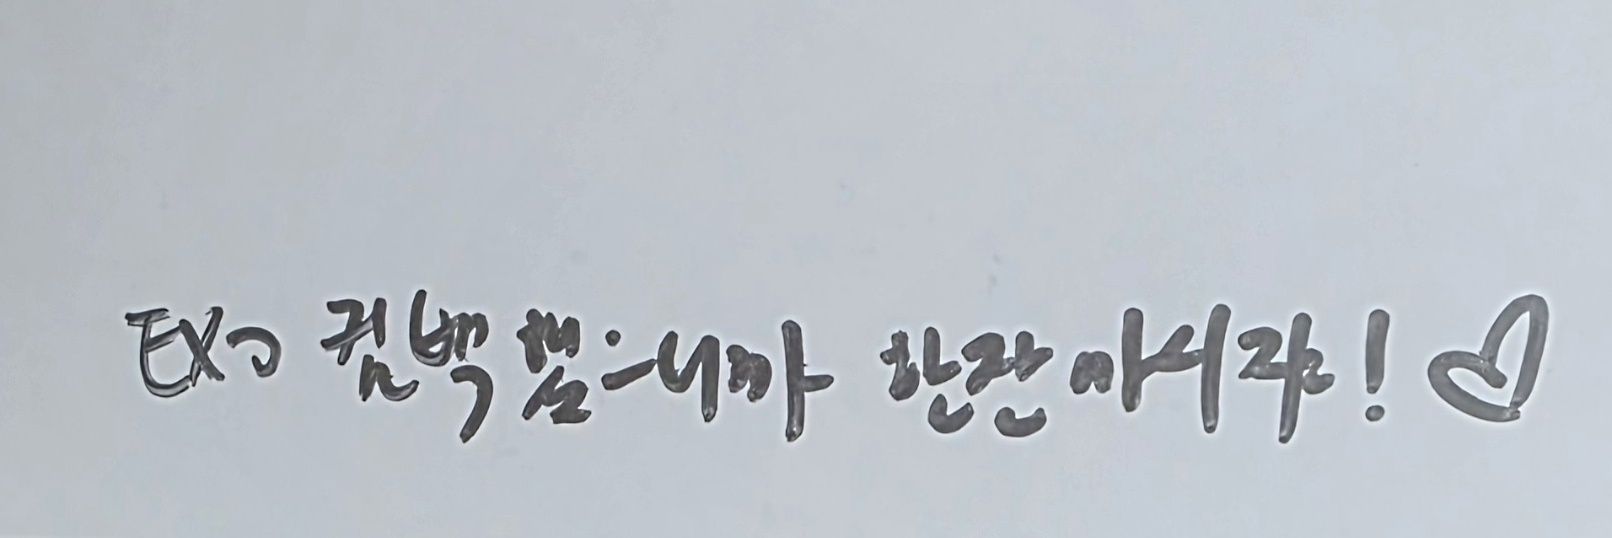 EXO 컴백했으니까 한잔 마시자! ♡